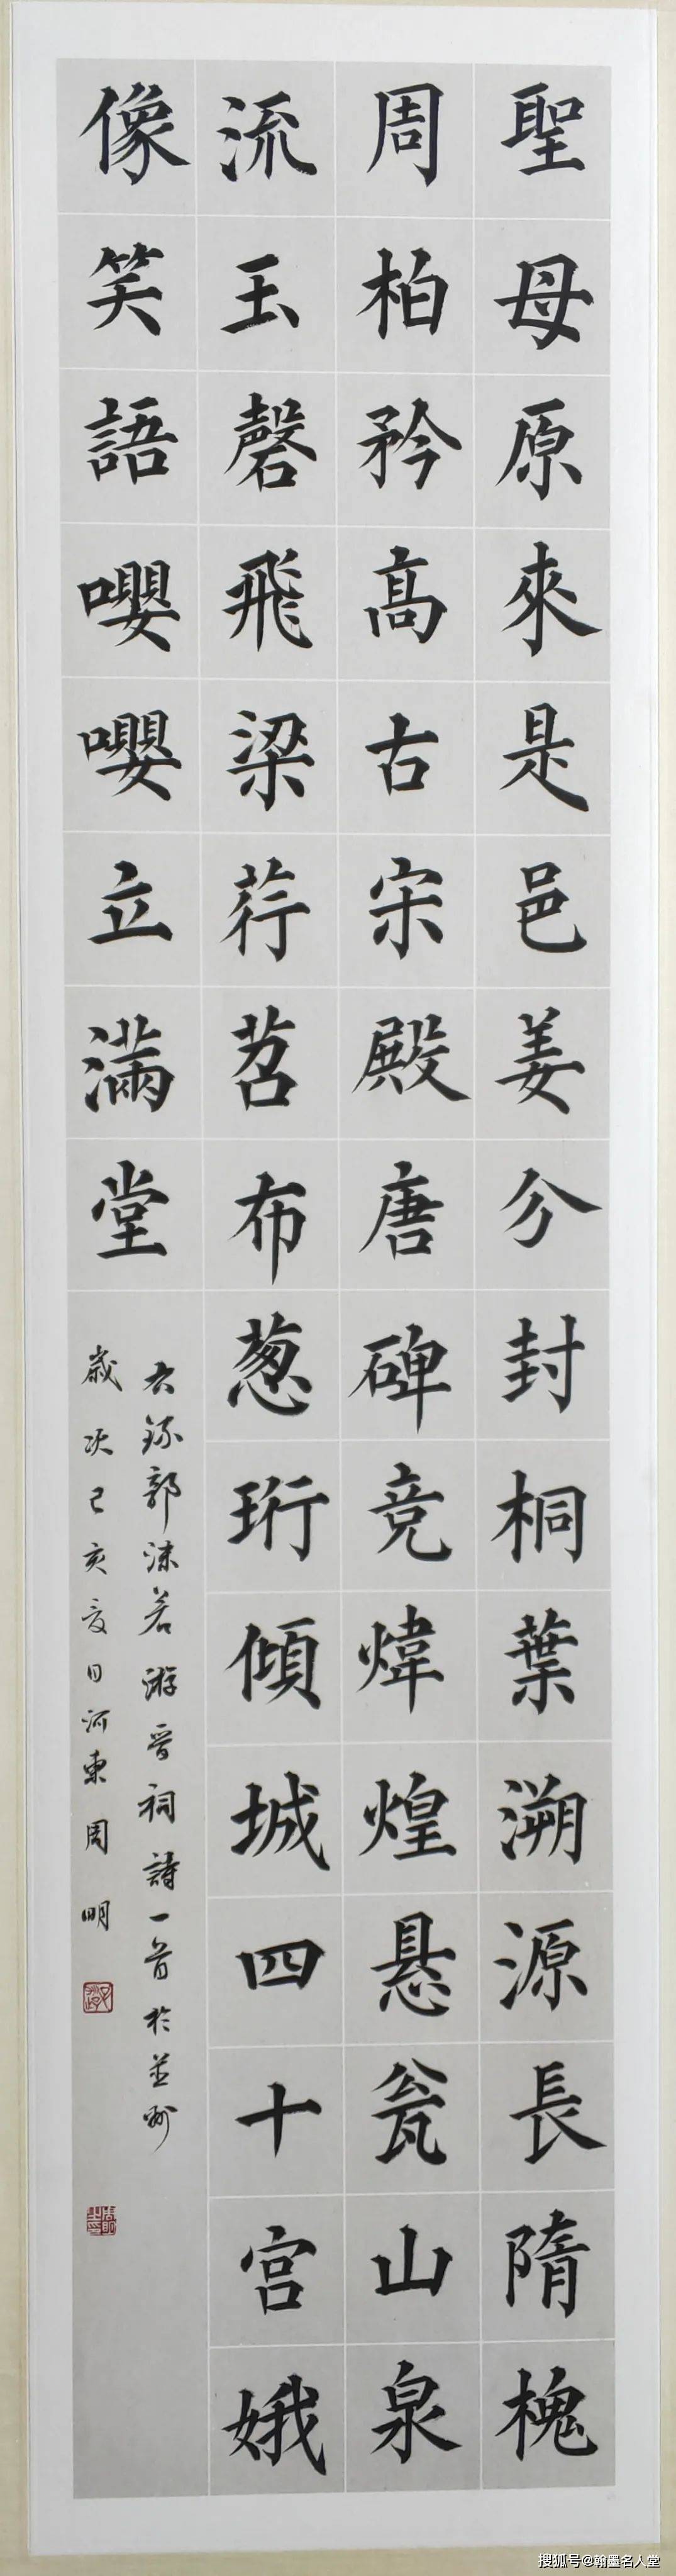 聖母原來是邑姜兮封桐葉溯源長隋槐
周柏矜高古宋殿唐碑竞煒煌悬瓮山泉
流玉磬飛梁荇苕布葱珩傾城四十宫娥
像笑語嚶嚶立滿堂
右録郭沫若游晋祠詩一首於並州
歲次己亥夏日河東周明
搜狐号@翰墨名人堂